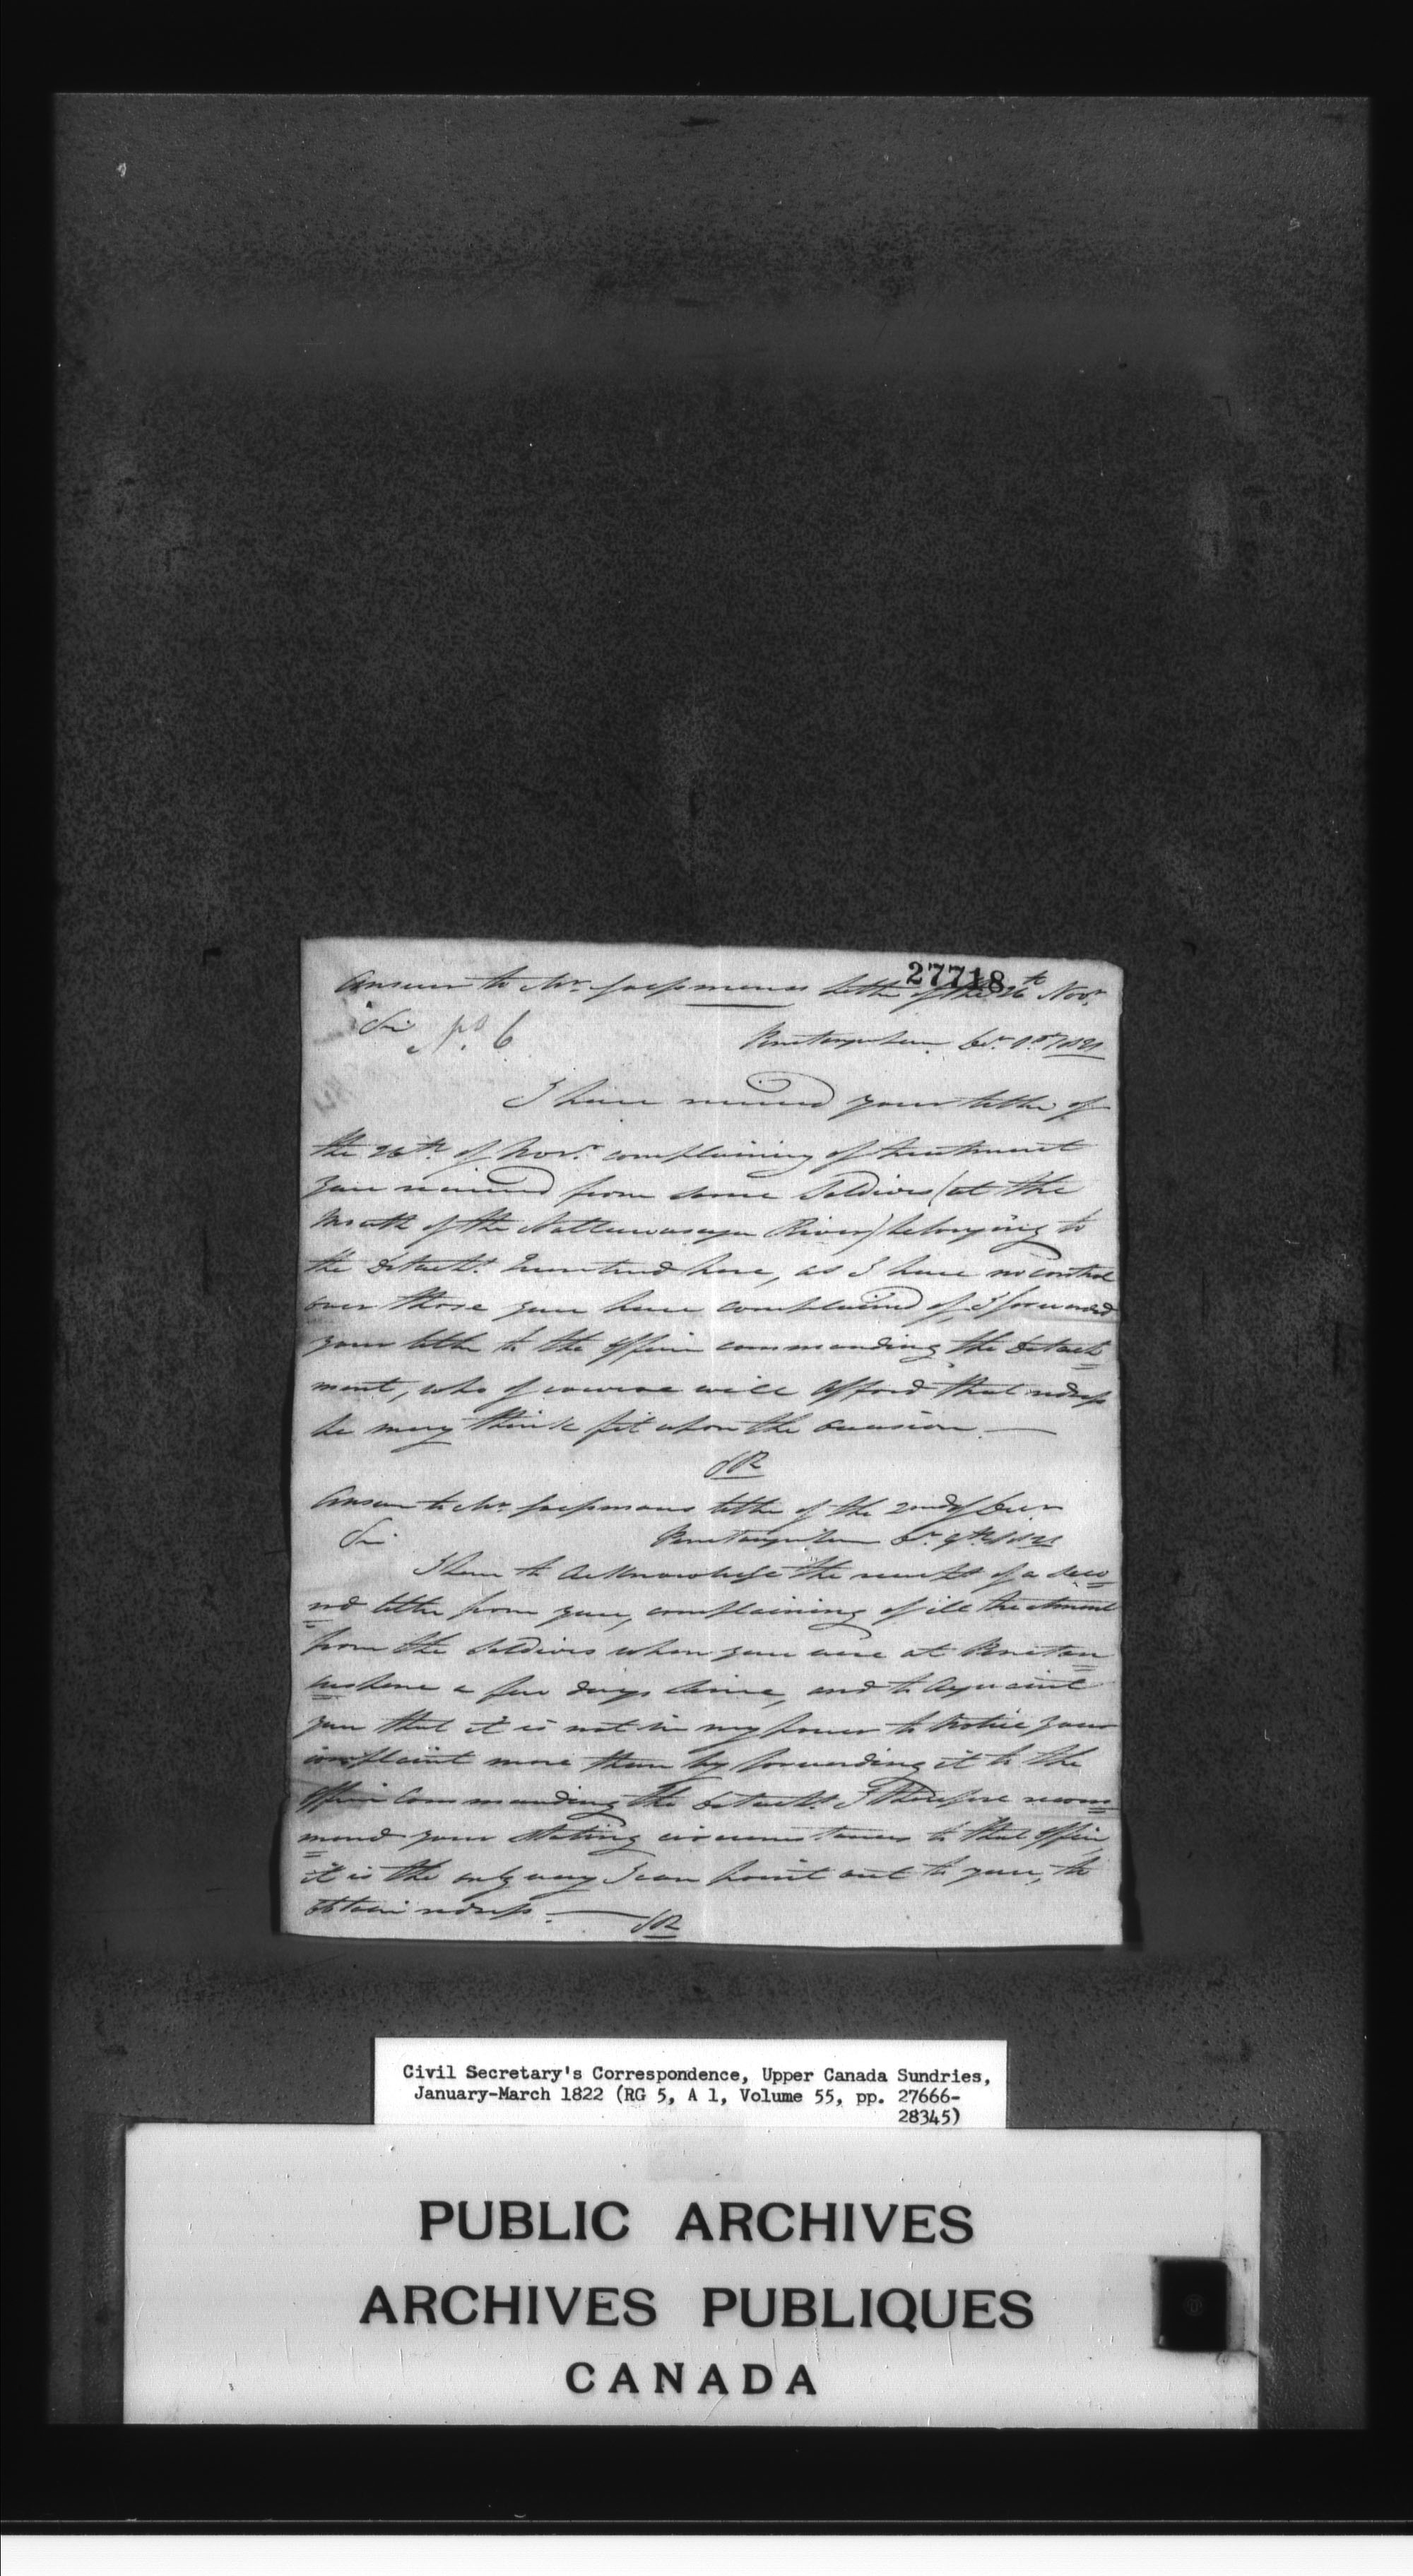 27718
Answer to Mr. letter of the 26th Novr
Sir No. 6
Penetanguishene Decr. 1st 1821
I have received your letter of
the 26th of Novr. complaining of treatment
you received from some Soldiers (at the
Mouth of the Nottawasaga River) belonging to
the Detacht. here, as I have no control
over those you have complained of, I forwarded
your letter to the Officer commanding the Detach=
ment, who of course will afford that redress
he may think fit upon the occasion. —
Answer to Mr. letter of the 2nd of Decr
Sir Penetanguishene Dr. 9th 1821
I have to acknowledge the receipt of a seco=
nd letter from you, complaining of ill treatment
from the Soldiers when you were at Penetan=
gushene a few days since, and to acquaint
you that it is not in my power to notice your
complaint more than by forwarding it to the
Officer Commanding the Detacht. I therefore recom=
mend your stating circumstances to that Officer
it is the only way I can point out to you, to
obtain redress. —
Civil Secretary's Correspondence, Upper Canada Sundries,
January-March 1822 (RG 5, A 1, Volume 55, pp. 27666-
28345)
PUBLIC ARCHIVES
ARCHIVES PUBLIQUES
CANADA